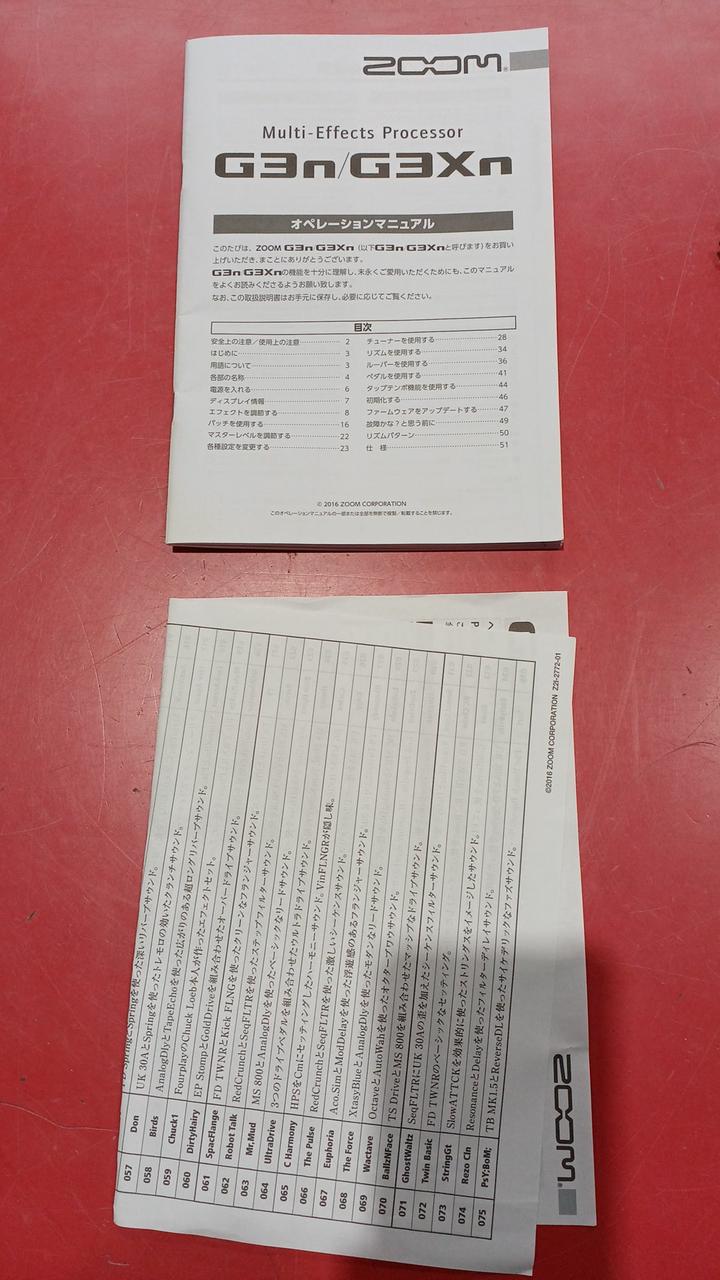 ZOOM
Multi-Effects Processor
G3n/G3Xn
オペレーションマニュアル
このたびは、ZOOM G3n G3Xn (以下G3n G3Xnと呼びます)をお買い
上げいただき、まことにありがとうございます。
G3n G3Xnの機能を十分に理解し、末永くご愛用いただくためにも、このマニュアル
をよくお読みくださるようお願い致します。
なお、この取扱説明書はお手元に保存し、必要に応じてご覧ください。
目次
安全上の注意／使用上の注意 2
はじめに 3
用語について 3
各部の名称 4
電源を入れる 6
ディスプレイ情報 7
エフェクトを調節する 8
パッチを使用する 16
マスターレベルを調節する 22
各種設定を変更する 23
チューナーを使用する 28
リズムを使用する 34
ルーパーを使用する 36
ペダルを使用する 41
タップテンポ機能を使用する 44
初期化する 46
ファームウェアをアップデートする 47
故障かな？と思う前に 49
リズムパターン 50
仕 様 51
© 2016 ZOOM CORPORATION
このオペレーションマニュアルの一部または全部を無断で複製／転載することを禁じます。
Springを使った深いリバーブサウンド。
057 Don UK 30AとSpringを使ったトレモロの効いたクランチサウンド。
058 Birds AnalogDlyとTapeEchoを使った広がりのある超ロングリバーブサウンド。
059 Chuck1 FourplayのChuck Loeb本人が作ったエフェクトセット。
060 DirtyHairy EP StompとGoldDriveを組み合わせたオーバードライブサウンド。
061 SpacFlange FD TWNRとKick FLNGを使ったクリーンなフランジャーサウンド。
062 Robot Talk RedCrunchとSeqFLTRを使ったステップフィルターサウンド。
063 Mr.Mud MS 800とAnalogDlyを使ったベーシックなリードサウンド。
064 UltraDrive 3つのドライブペダルを組み合わせたウルトラドライブサウンド。
065 C Harmony HPSをCmにセッティングしたハーモニーサウンド。
066 The Pulse RedCrunchとSeqFLTRを使った激しいシーケンスサウンド。VinFLNGRが隠し味。
067 Euphoria Aco.SimとModDelayを使った浮遊感のあるフランジャーサウンド。
068 The Force XtasyBlueとAnalogDlyを使ったモダンなリードサウンド。
069 Wactave OctaveとAutoWahを使ったオクターブワウサウンド。
070 BallzNFace TS DriveとMS 800を組み合わせたマッシブなドライブサウンド。
071 GhostWaltz SeqFLTRにUK 30Aの歪を加えたシーケンスフィルターサウンド。
072 Twin Basic FD TWNRのベーシックなセッティング。
073 StringGt SlowATTCKを効果的に使ったストリングスをイメージしたサウンド。
074 Rezo Cln ResonanceとDelayを使ったフィルターディレイサウンド。
075 PsY:BoM; TB MK1.5とReverseDLを使ったサイケデリックなファズサウンド。
©2016 ZOOM CORPORATION Z2I-2772-01
ZOOM